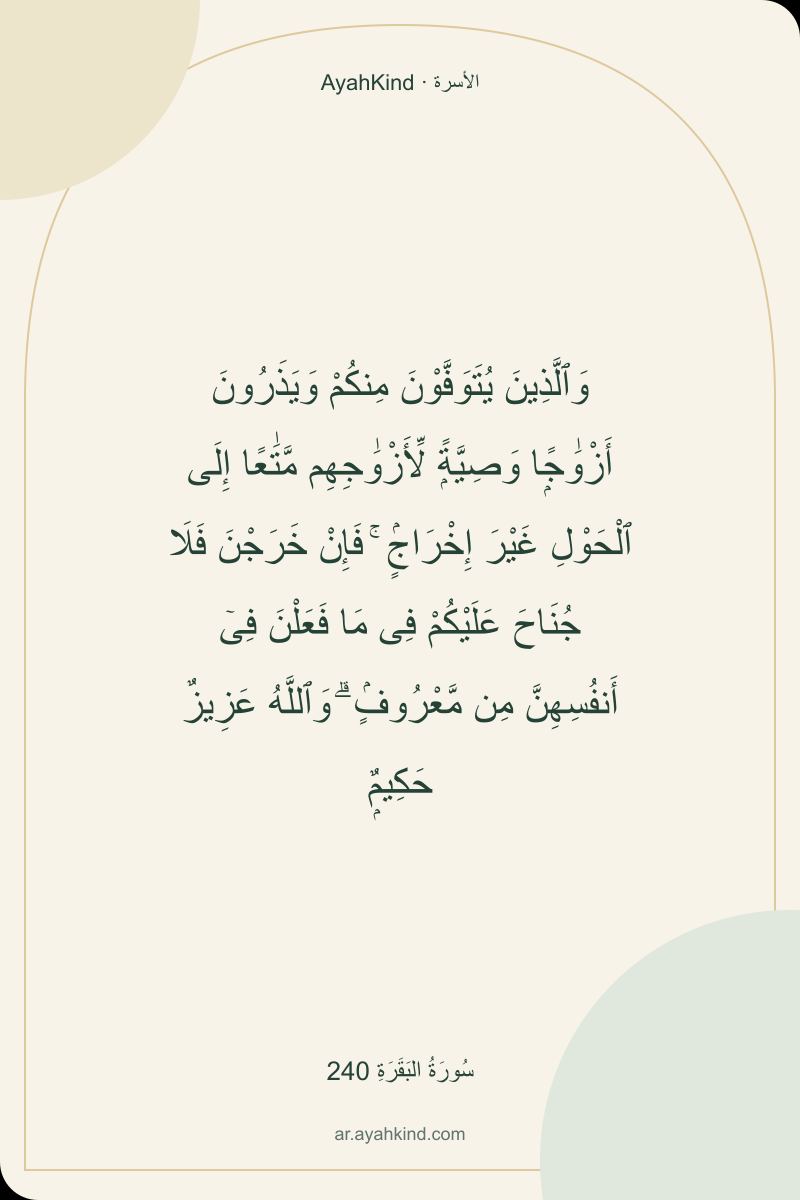 AyahKind · الأسرة
وَٱلَّذِينَ يُتَوَفَّوْنَ مِنكُمْ وَيَذَرُونَ
أَزْوَٰجًۭا وَصِيَّةًۭ لِّأَزْوَٰجِهِم مَّتَـٰعًا إِلَى
ٱلْحَوْلِ غَيْرَ إِخْرَاجٍۢ ۚ فَإِنْ خَرَجْنَ فَلَا
جُنَاحَ عَلَيْكُمْ فِى مَا فَعَلْنَ فِىٓ
أَنفُسِهِنَّ مِن مَّعْرُوفٍۢ ۗ وَٱللَّهُ عَزِيزٌ
حَكِيمٌۭ
سُورَةُ البَقَرَةِ 240
ar.ayahkind.com